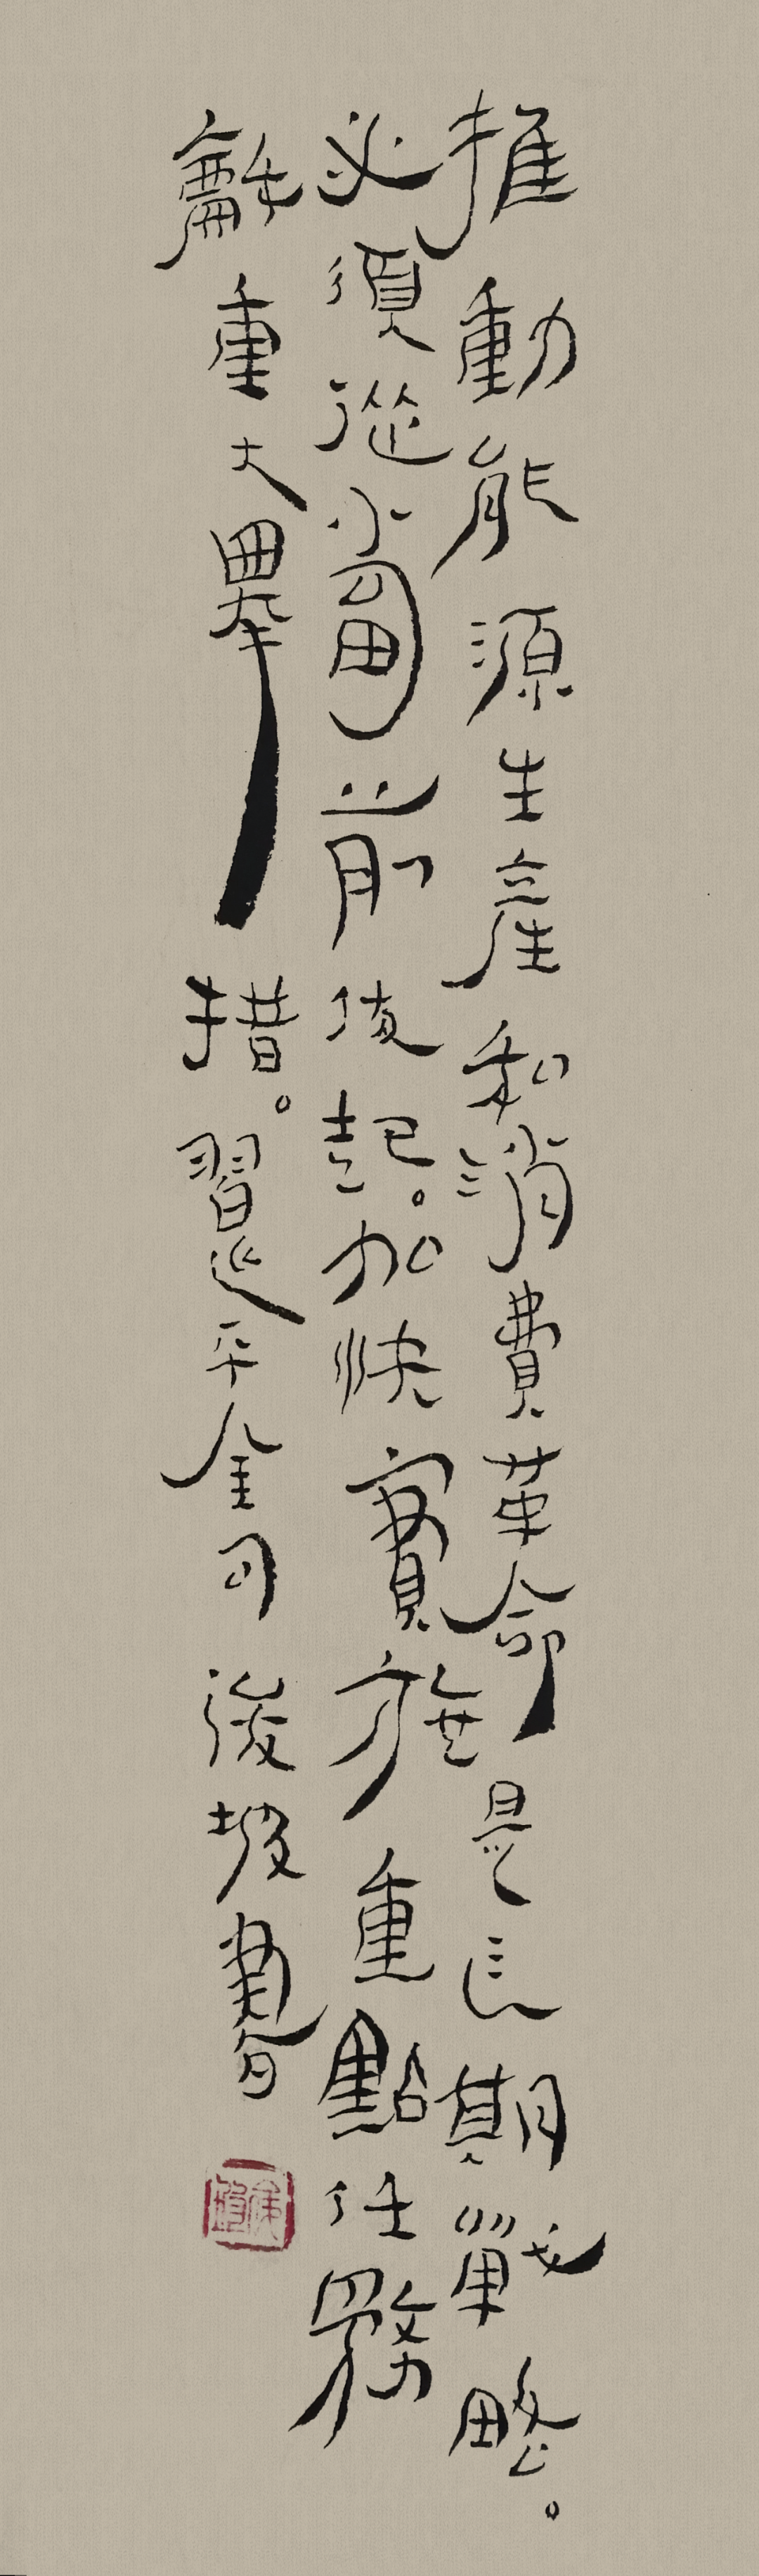 推動能源生産和消費革命是長期戰略。
必須從當前做起。加快實施重點任務
龢重大舉措。習近平金句 後坡書